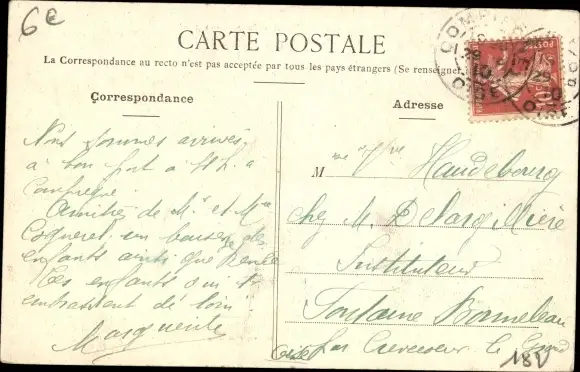 6e
CARTE POSTALE
La Correspondance au recto n'est pas acceptée par tous les pays étrangers (Se renseigner
Correspondance
Adresse
Nous sommes arrivés
à bon port à 11 h. a
Compiègne.
Amitiés de Mr et Mme
Coqueret un baiser des
enfants ainsi que Renée
Les enfants
de loin
Marguerite
Mme Vve Haudebourg
chez M. Delargillière
Instituteur
Fontaine Bonneleau
par Crevecoeur le Grand
Oise
182